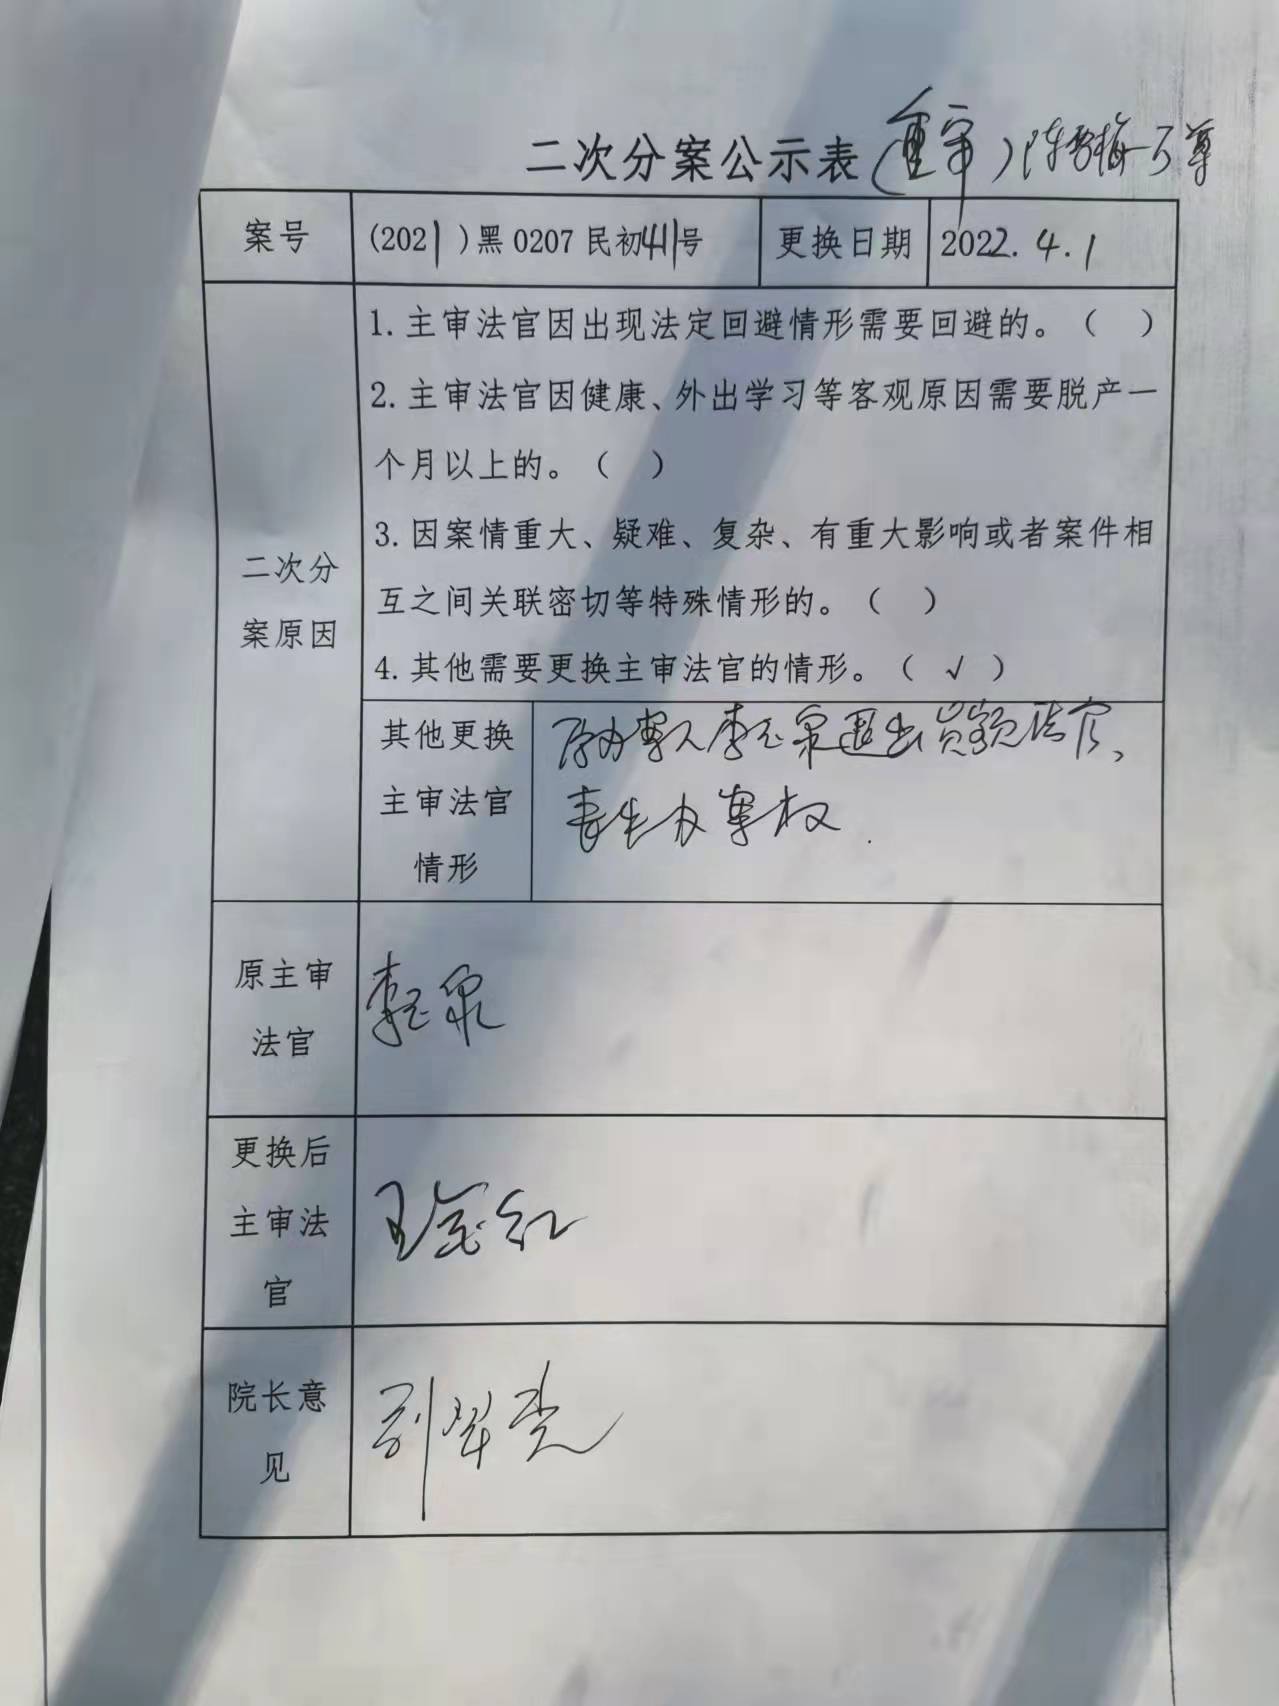 二次分案公示表(重审)
案号 (2021)黑0207民初411号 更换日期 2022.4.1
二次分案原因
1.主审法官因出现法定回避情形需要回避的。( )
2.主审法官因健康、外出学习等客观原因需要脱产一
个月以上的。( )
3.因案情重大、疑难、复杂、有重大影响或者案件相
互之间关联密切等特殊情形的。( )
4.其他需要更换主审法官的情形。( √ )
其他更换
主审法官
情形
原办案人李 泉退出员额法官、
丧失办案权.
原主审
法官
李 泉
更换后
主审法
官
王 红
院长意
见
刘